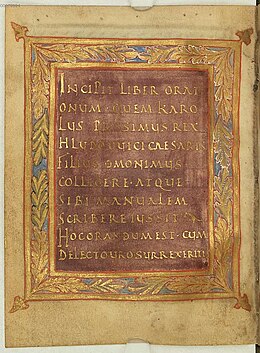 INCIPIT LIBER ORATI
ONUM QUEM KARO
LUS PIISSIMUS REX
HLUDOUUICI CAESARIS
FILIUS OMONIMUS
COLLIGERE ATQUE
SIBI MANUALEM
SCRIBERE IUSSIT
HOC ORANDUM EST CUM
DE LECTO UR̅O SURREXERITIS